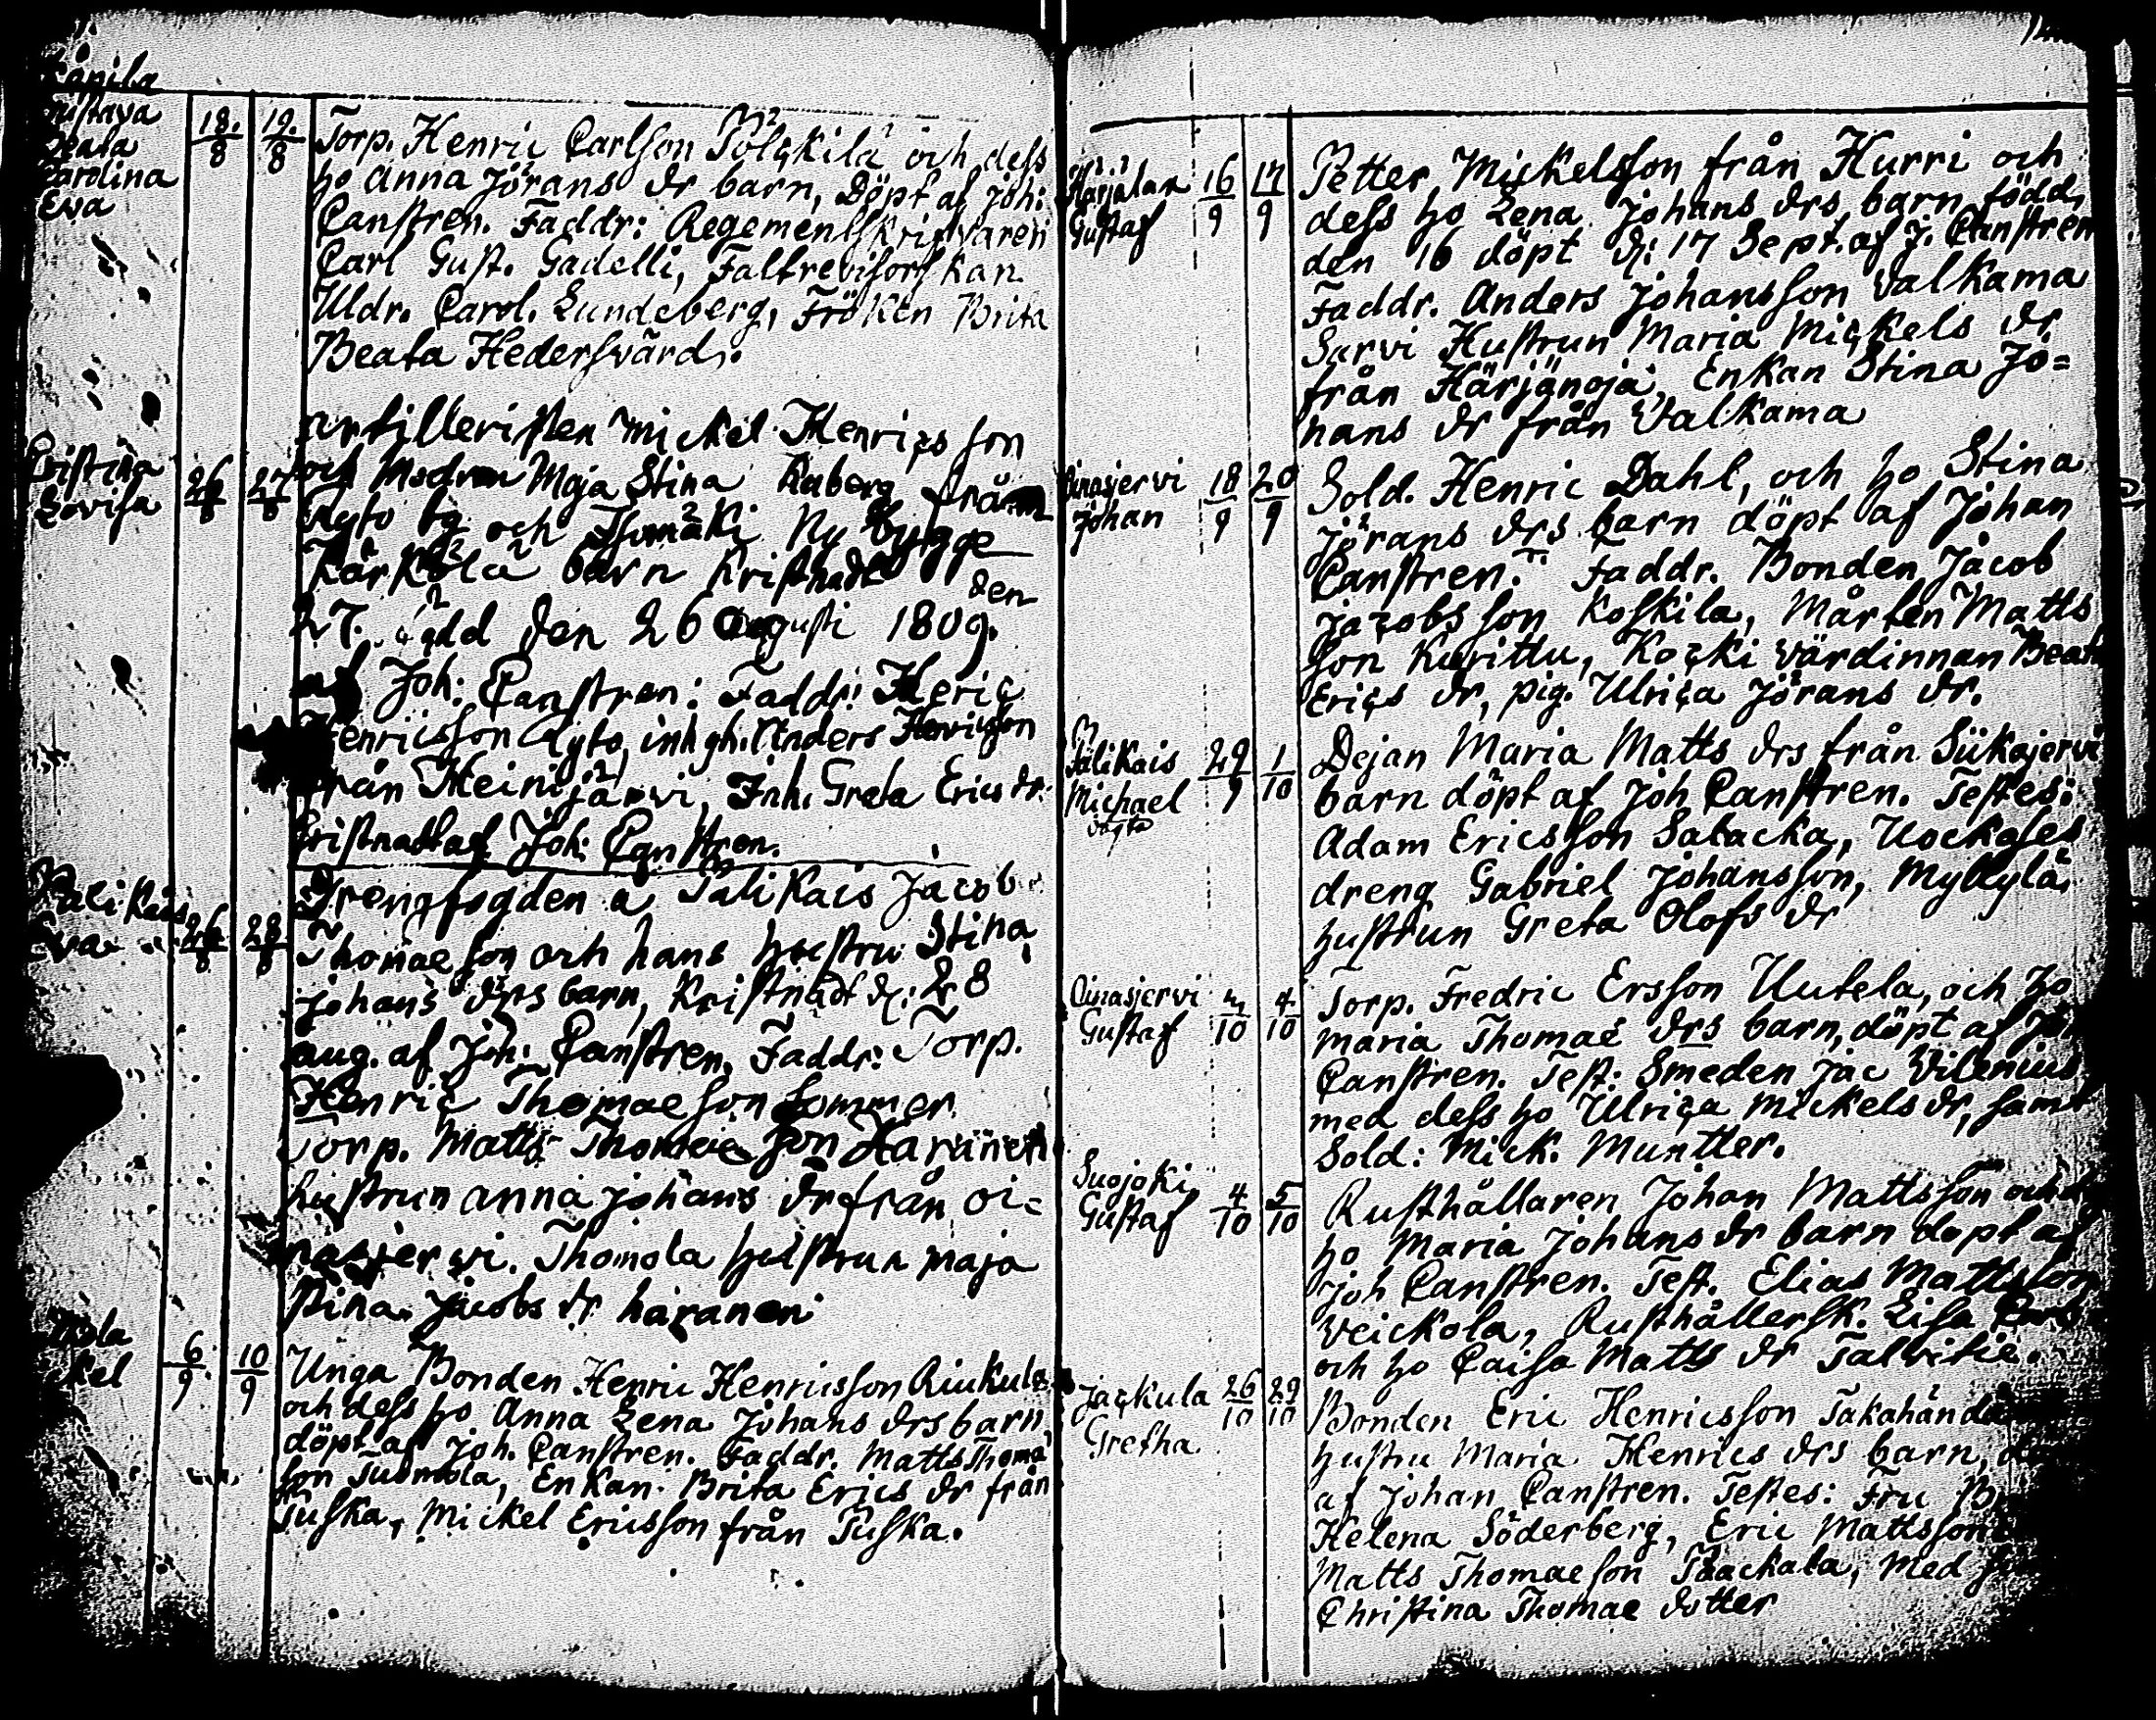 Gustava
Beata
Carolina
Eva
18. 19.
8 8
Torp. Henric Carlson Sölçkilä och dess
ho Anna Jörans dr barn, Döpt af Joh:
Canstren. Faddr: Regementsskrifvaren
Carl Gust. Gadelli, Fältrevisorskan
Uldr. Carol. Lundeberg, Fröken Brita
Beata Hedersvärd.
Cristina
Lovisa
26 27
8 8
Artilleristen Mickel Henrics son
och Modren Maja Stina från
och Ny bygge
Kärkölä barn Kristnadt den
27. född den 26 Augusti 1809.
af Joh: Canstren: Faddr: Heric
Henricsson Ryto, inhgh. Anders Henricsson
från Heinijärvi, Inh. Greta Erics dr.
Cristnadt af Joh: Canstren.
Palikais
Eva
26 28
8 8
Drengfogden a Palikais Jacob
Thomae son och hans hustru Stina
Johans drs barn, Kristnadt d: 28
aug. af Joh: Canstren. Faddr: Torp.
Henric Thomae son Sommer
Torp. Matts Thomae son Haranen
hustrun Anna Johans dr från Oi=
nasjervi. Thomola hustrun Maja
Stina Jacobs dr haranen
6 10
9 9
Unga Bonden Henric Henricsson Riukula
och dess ho Anna Lena Johans drs barn
döpt af Joh. Canstren. Faddr. Matts Thoma
son Tuomola, Enkan Brita Erics dr från
Tuska, Mickel Ericsson från Tuska.
Harjalan
Gustaf
16 17
9 9
Petter Mickelsson från Hurri och
dess ho Lena Johans drs barn född
den 16 döpt d: 17 Sept. af J. Canstren
Faddr. Anders Johansson Valkama
Sarvi Hustrun Maria Mickels dr
från Härjänoja, Enkan Stina Jo=
hans dr från Valkama
Oinasjervi
Johan
18 20
9 9
Sold. Henric Dahl, och ho Stina
Jörans drs barn döpt af Johan
Canstren. Faddr. Bonden Jacob
Jacobsson Koskila, Mårten Matts
son Kurittu, Koçki värdinnan Beata
Erics dr, pig. Ulrica Jörans dr.
Palikais
Michael
29 1
9 10
Dejan Maria Matts drs från Siikajervi
barn döpt af Joh Canstren. Testes:
Adam Ericsson Satacka, Uockoses
dreng Gabriel Johansson, Myllylä,
hustrun Greta Olofs dr
Oinasjervi
Gustaf
3 4
10 10
Torp. Fredric Ersson Uutela, och ho
Maria Thomae drs barn, döpt af Joh
Canstren. Test: Smeden Jac Vilenius
med dess ho Ulrica Mickels dr, samt
Sold: Mick. Muntter.
Suojoki
Gustaf
4 5
10 10
Rusthållaren Johan Mattsson och
ho Maria Johans dr barn döpt af
Joh Canstren. Test. Elias Mattsson
Veickola, Rusthållersk. Lisa
och ho Caisa Matts dr Talvitie.
Jaçkula
Gretha
26 29
10 10
Bonden Eric Henricsson Takahanda
hustru Maria Henrics drs barn,
af Johan Canstren. Testes: Fru
Helena Söderberg, Eric Mattsson
Matts Thomae son Taackala, med
Christina Thomae dotter